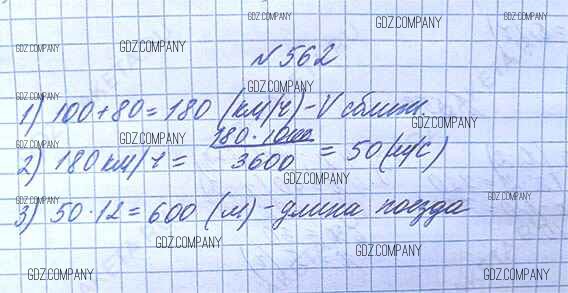 GDZ.COMPANY GDZ.COMPANY GDZ.COMPANY
GDZ.COMPANY GDZ.COMPANY
№ 562
GDZ.COMPANY
GDZ.COMPANY
1) 100 + 80 = 180 (км/ч) - V сближ.
GDZ.COMPANY GDZ.COMPANY
2) 180 км/ч = 180 · 1000 / 3600 = 50 (м/с)
GDZ.COMPANY GDZ.COMPANY
GDZ.COMPANY GDZ.COMPANY
3) 50 · 12 = 600 (м) - длина поезда
GDZ.COMPANY GDZ.COMPANY
GDZ.COMPANY GDZ.COMPANY GDZ.COMPANY